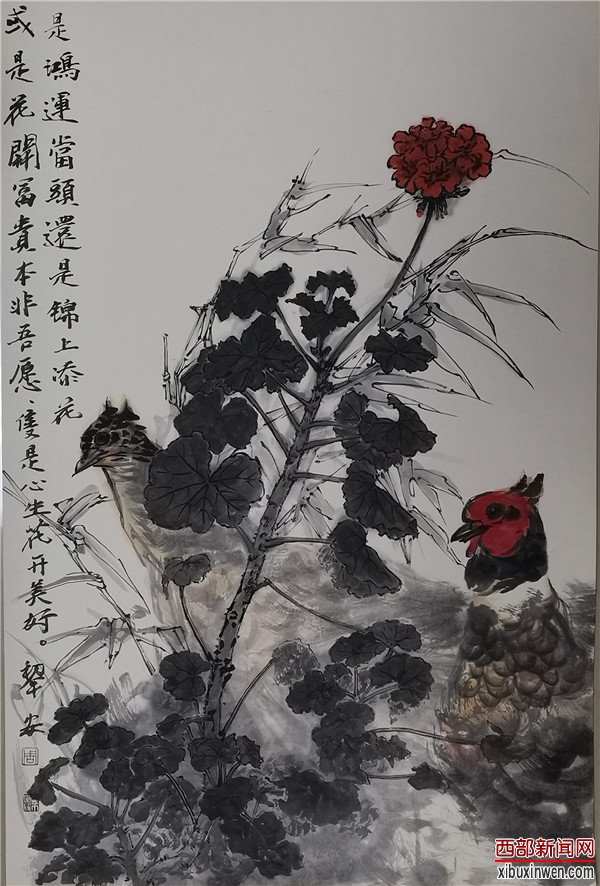 是鴻運當頭還是锦上添花
或是花開富貴本非吾愿、隻是心生花开美好。安
西部新闻网
xibuxinwen.com